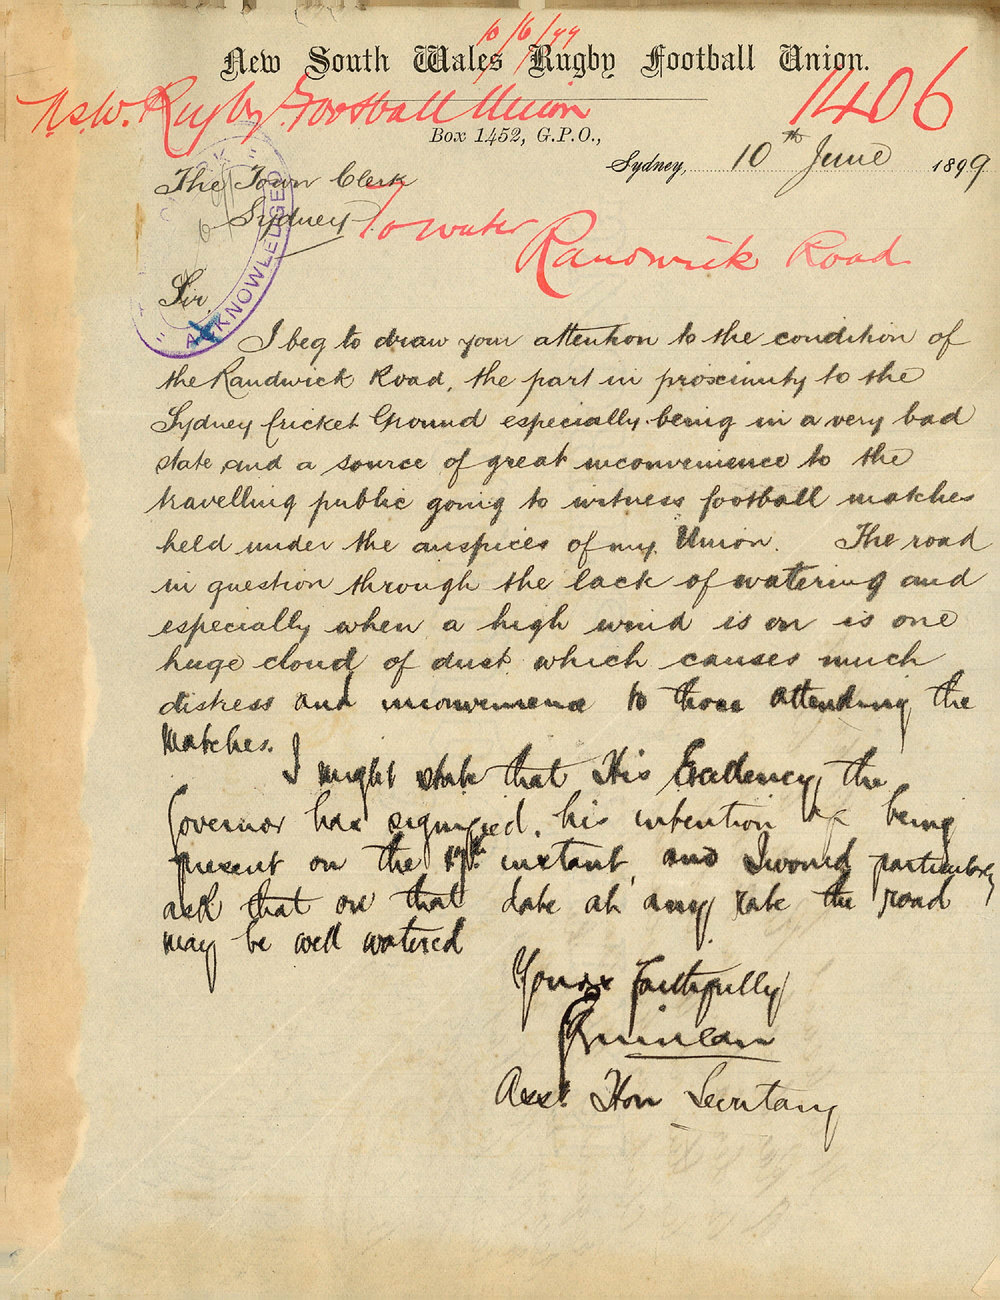 10/6/99
New South Wales Rugby Football Union.
N.S.W. Rugby Football Union
1406
Box 1452, G.P.O.,
Sydney, 10th June 1899
The Town Clerk
Sydney
To water
Randwick Road
ACKNOWLEDGED
Sir
I beg to draw your attention to the condition of
the Randwick Road, the part in proximity to the
Sydney Cricket Ground especially being in a very bad
state and a source of great inconvenience to the
travelling public going to witness football matches
held under the auspices of my Union. The road
in question through the lack of watering and
especially when a high wind is on is one
huge cloud of dust which causes much
distress and inconvenience to those attending the
Matches.
I might state that His Excellency the
Governor has signified his intention of being
present on the 17th instant and I would particularly
ask that on that date at any rate the road
may be well watered
Yours Faithfully
Asst. Hon Secretary